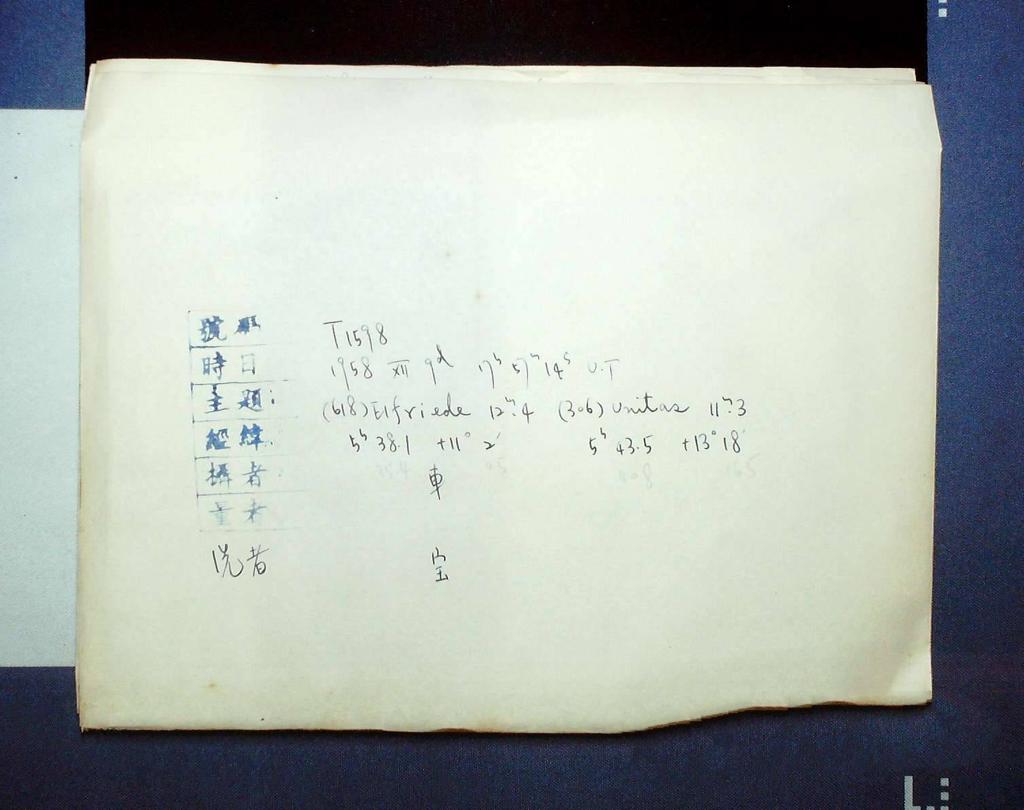 號 T1598
時日 1958 XII 9ᵈ 17ʰ 57ᵐ 14ˢ U.T
主題: (618) Elfriede 12ᵐ.4 (306) Unitas 11ᵐ.3
經緯: 5ʰ 38.1 +11° 2′ 5ʰ 43.5 +13° 18′
攝者: 車
量者
洗者 宝